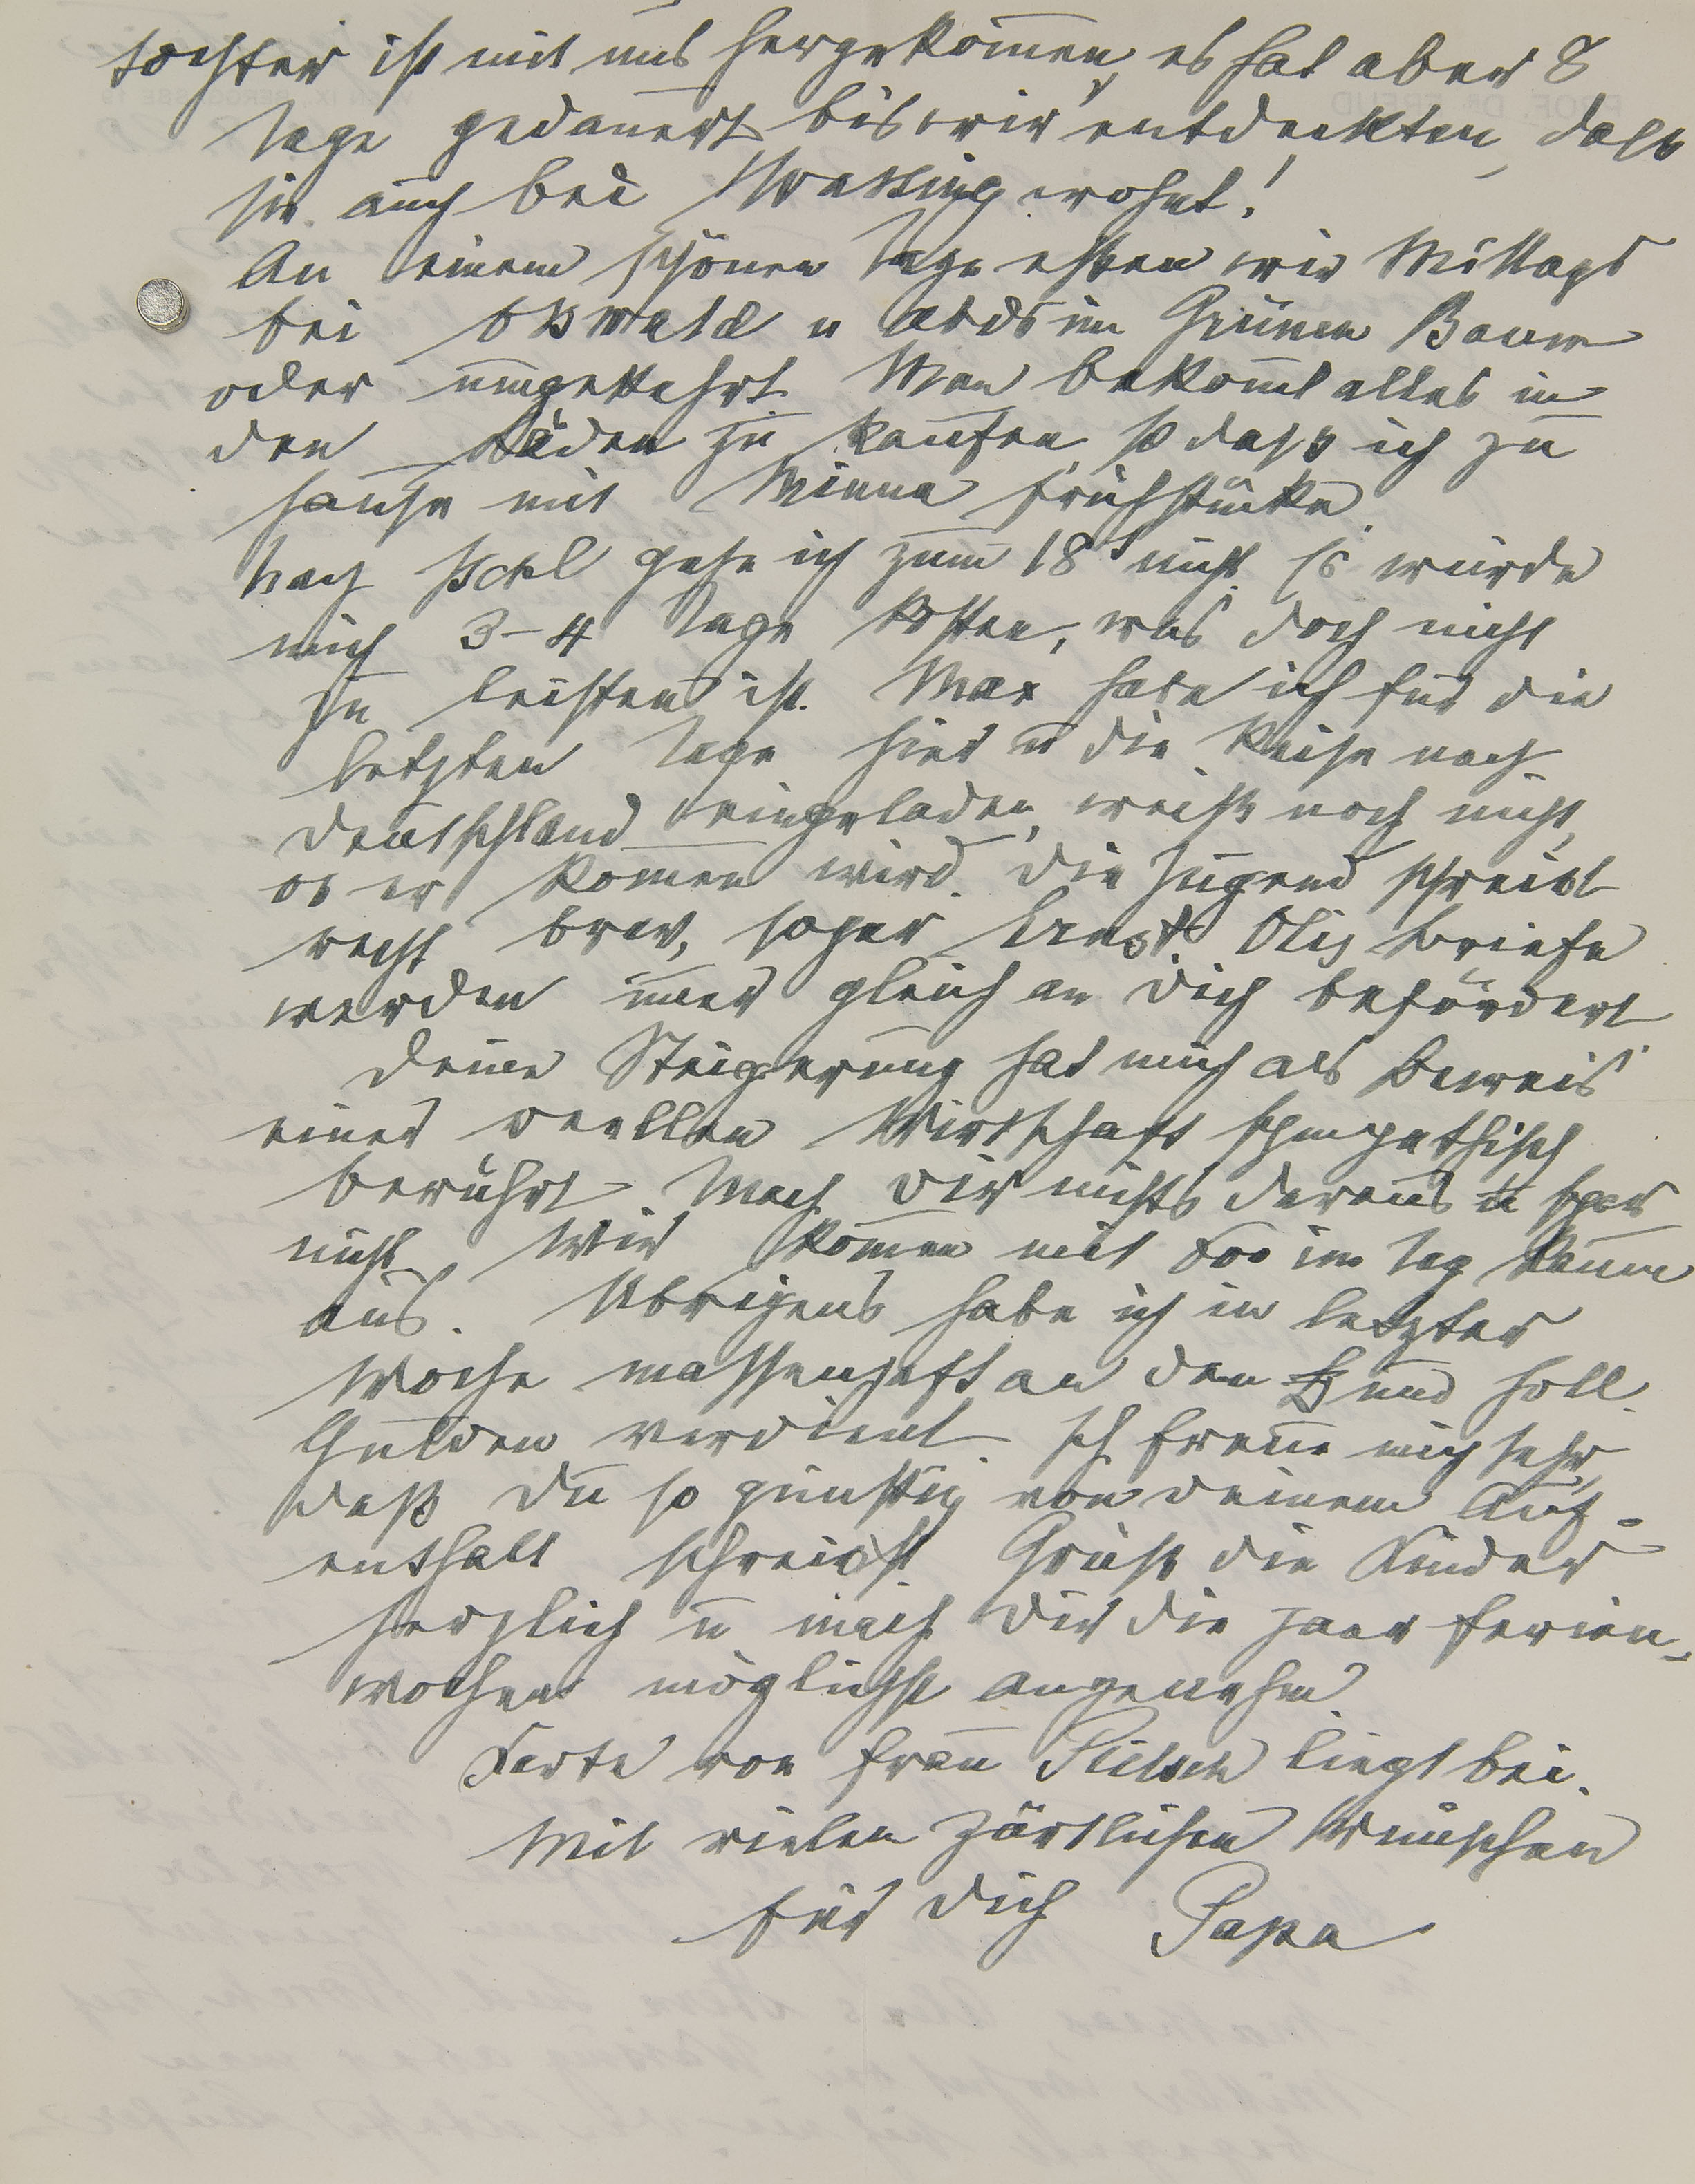 tochter ist mit uns hergekom̅en, es hat aber 8
Tage gedauert bis wir entdeckten, daß
sie auch bei Wassing wohnt!
An einem schönen Tage essen wir Mittags
bei Oswald u abds im Grünen Baum
oder umgekehrt. Man bekom̅t alles in
den Läden zu kaufen, so daß ich zu
hause mit Minna frühstücke.
Nach Ischl gehe ich zum 18t nicht. Es würde
mich 3–4 Tage kosten, was doch nicht
zu leisten ist. Max habe ich für die
letzten Tage hier u die Reise nach
Deutschland eingeladen, weiß noch nicht,
ob er kom̅en wird. Die Jugend schreibt
recht brav, sogar Ernst. Olis Briefe
werden im̅er gleich an Dich befördert
Deine Steigerung hat mich als Beweis
einer reellen Wirtschaft sympathisch
berührt. Mach Dir nichts daraus u spar
nicht. Wir kom̅en mit 500 im Tag kaum
aus. Übrigens habe ich in letzter
Woche massenhaft an den £ und holl.
Gulden verdient. Ich freue mich sehr,
daß Du so günstig von deinem Auf-
enthalt schreibst. Grüße die Kinder
herzlich u mach Dir die paar Ferien-
wochen möglichst angenehm.
Karte von Frau liegt bei.
Mit vielen zärtlichen Wünschen
für Dich Papa